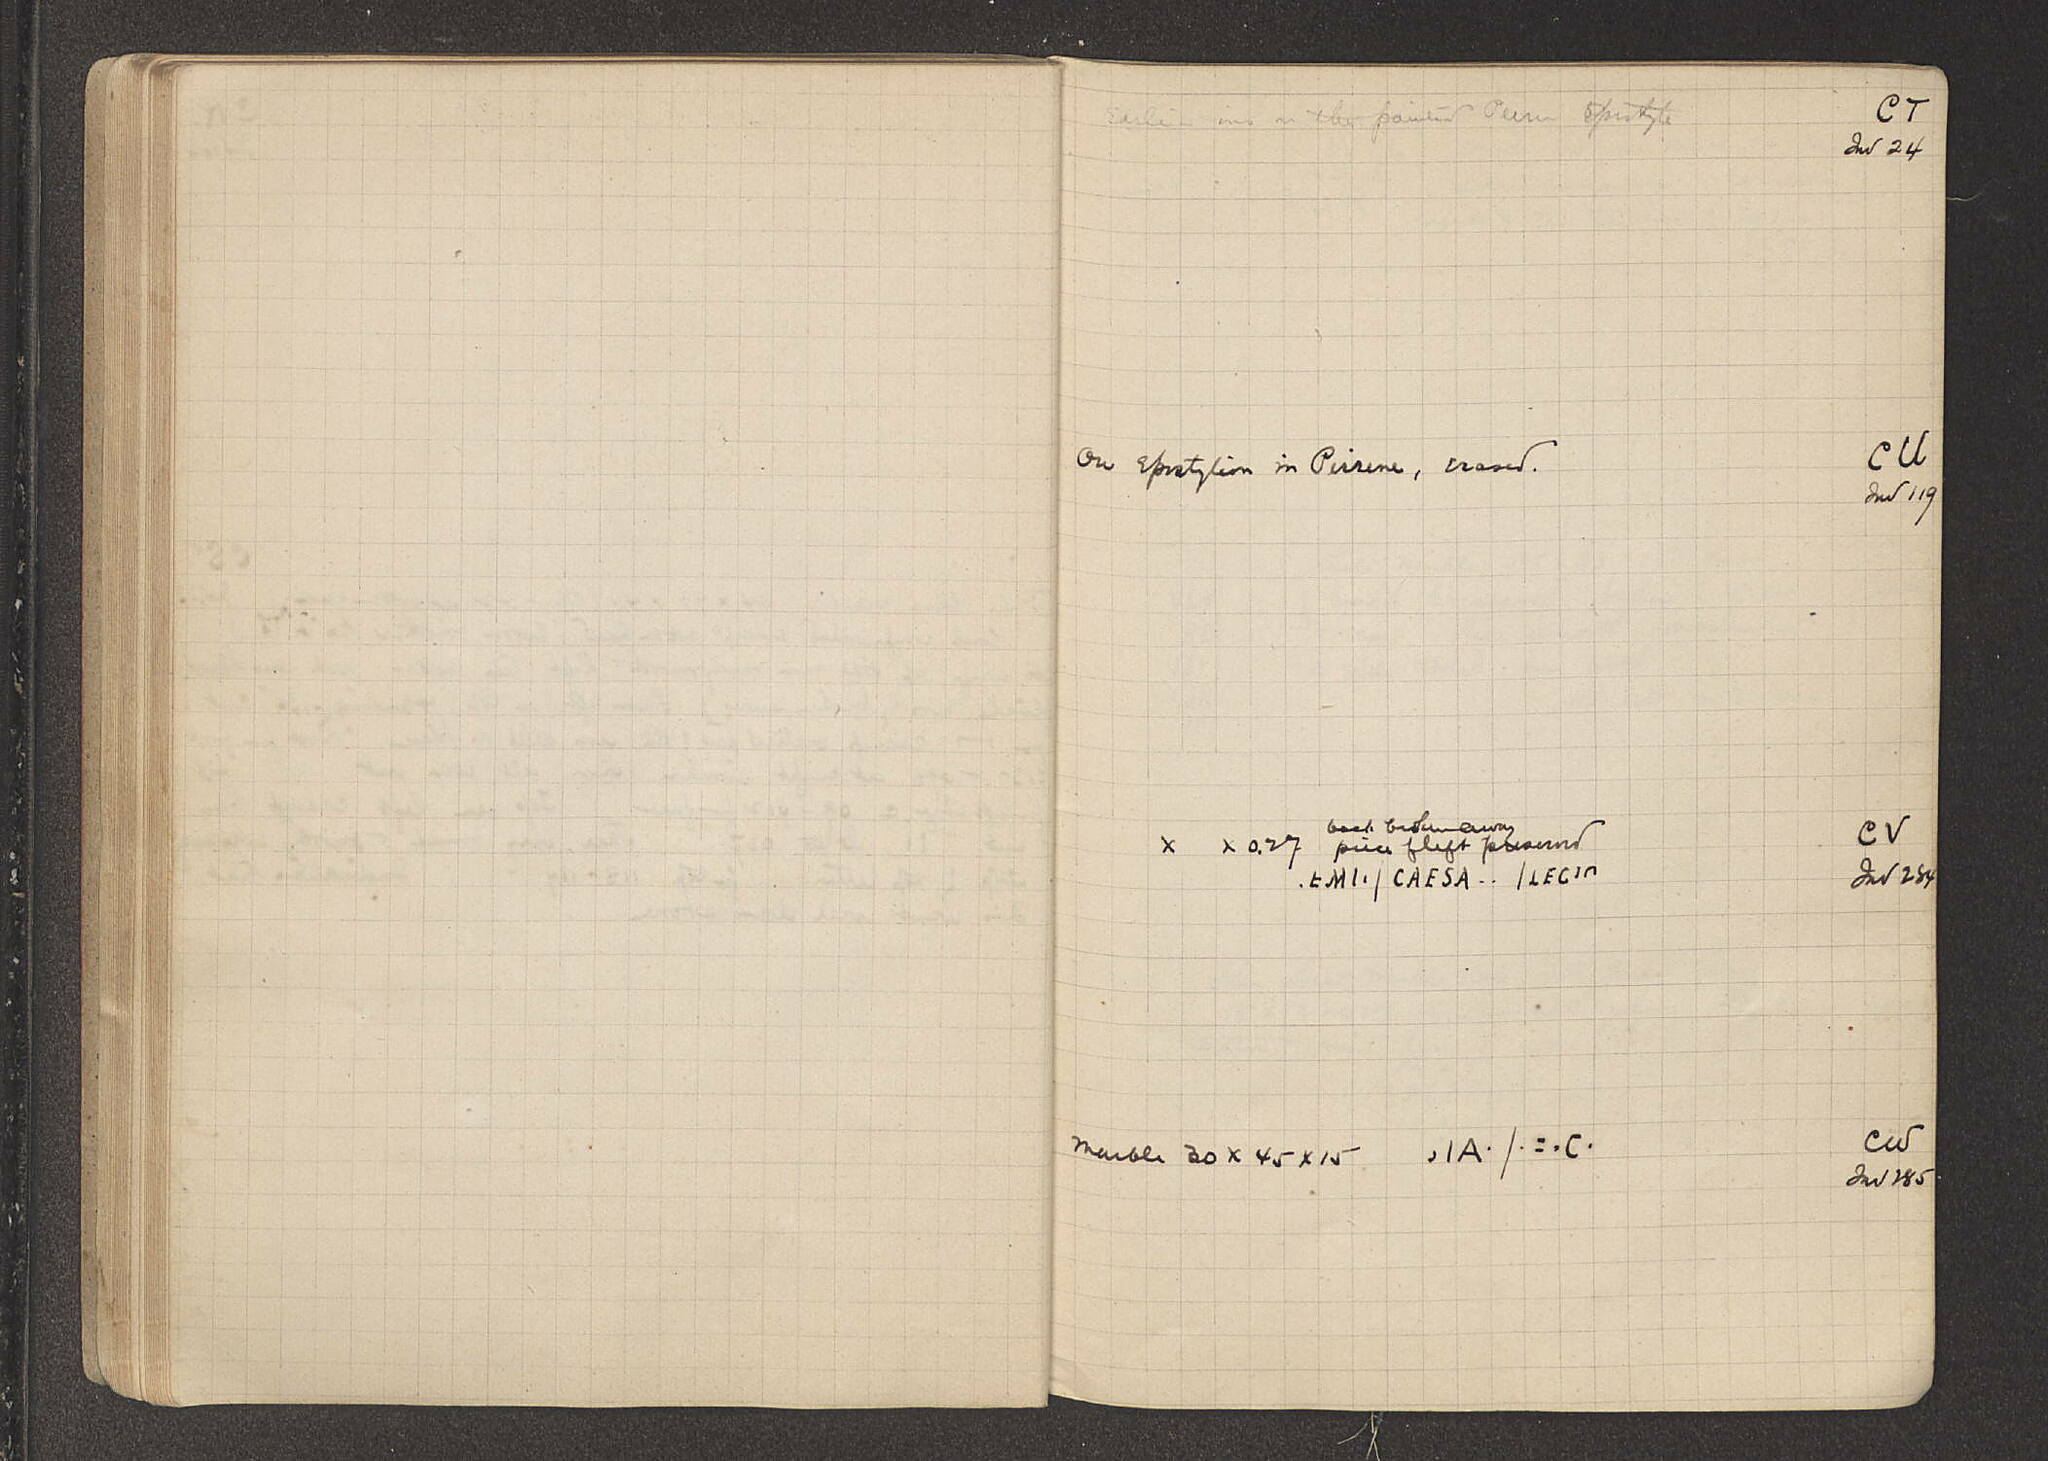 Earlier ins on the painted Peirene Epistyle CT
Inv 24
On Epistylion in Peirene, erased. CU
Inv 119
back broken away
x x 0.27 piece of left preserved CV
.EMI./CAESA.. /LEGI Inv 284
Marble 30 x 45 x 15 ./A./.=.C. CW
Inv 285